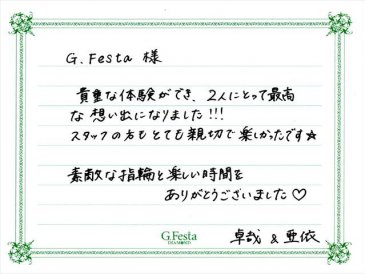 G.Festa 様
貴重な体験ができ、2人にとって最高
な想い出になりました!!!
スタッフの方もとても親切で楽しかったです☆
素敵な指輪と楽しい時間を
ありがとうございました♡
G.Festa
DIAMOND
卓哉 & 亜依